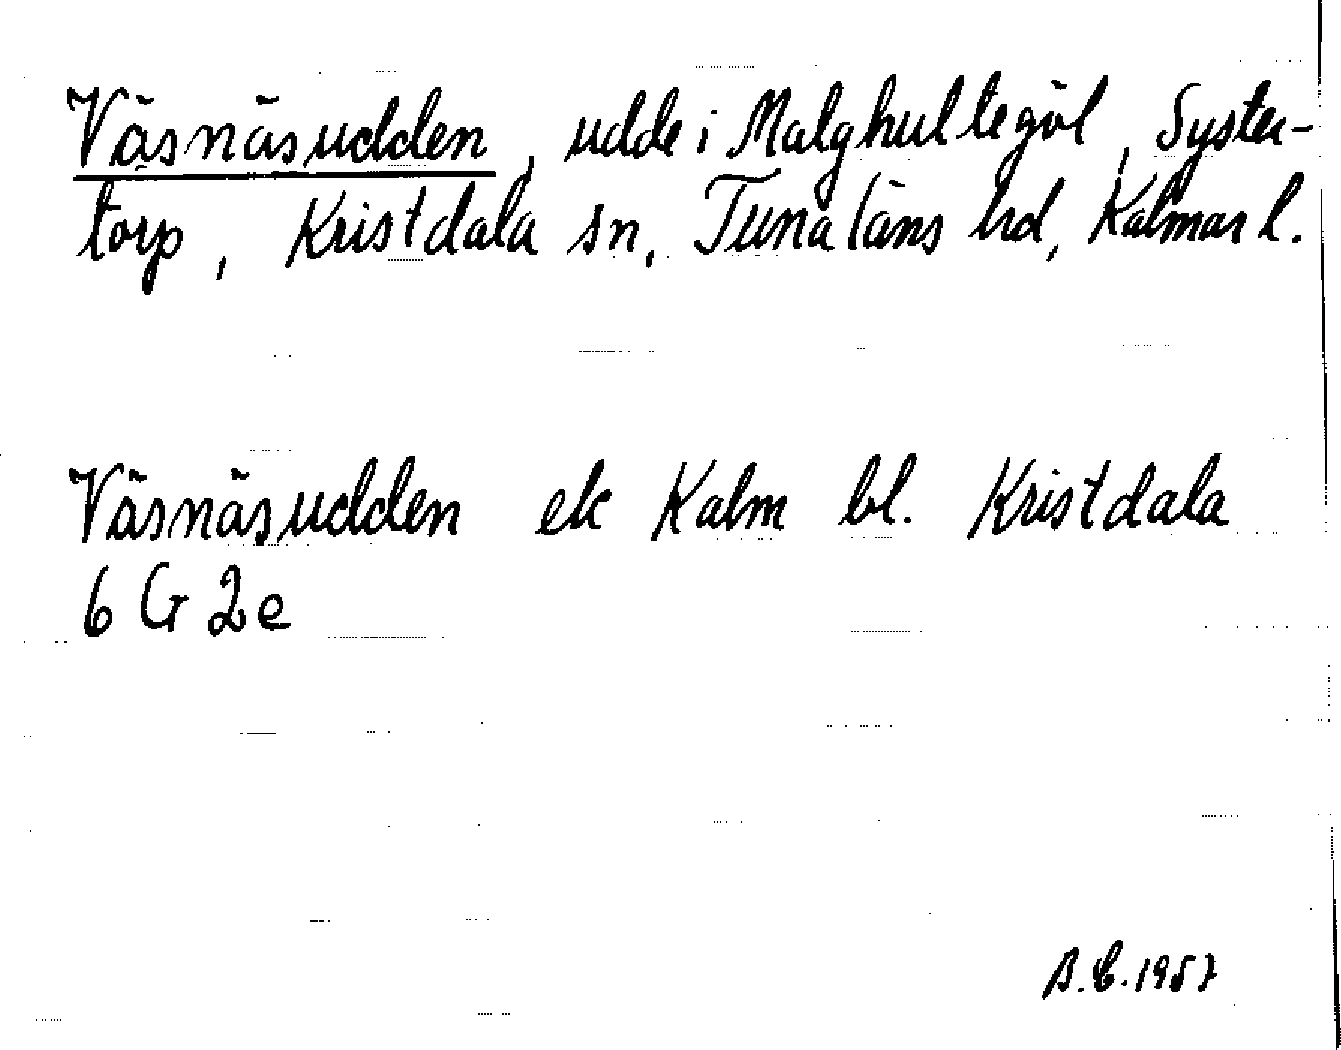 Väsnäsudden, udde i Malghultegöl, Syster-
torp, Kristdala sn, Tunaläns hd, Kalmar l.
Väsnäsudden ek Kalm bl. Kristdala
6 G 2e
B.E.1957